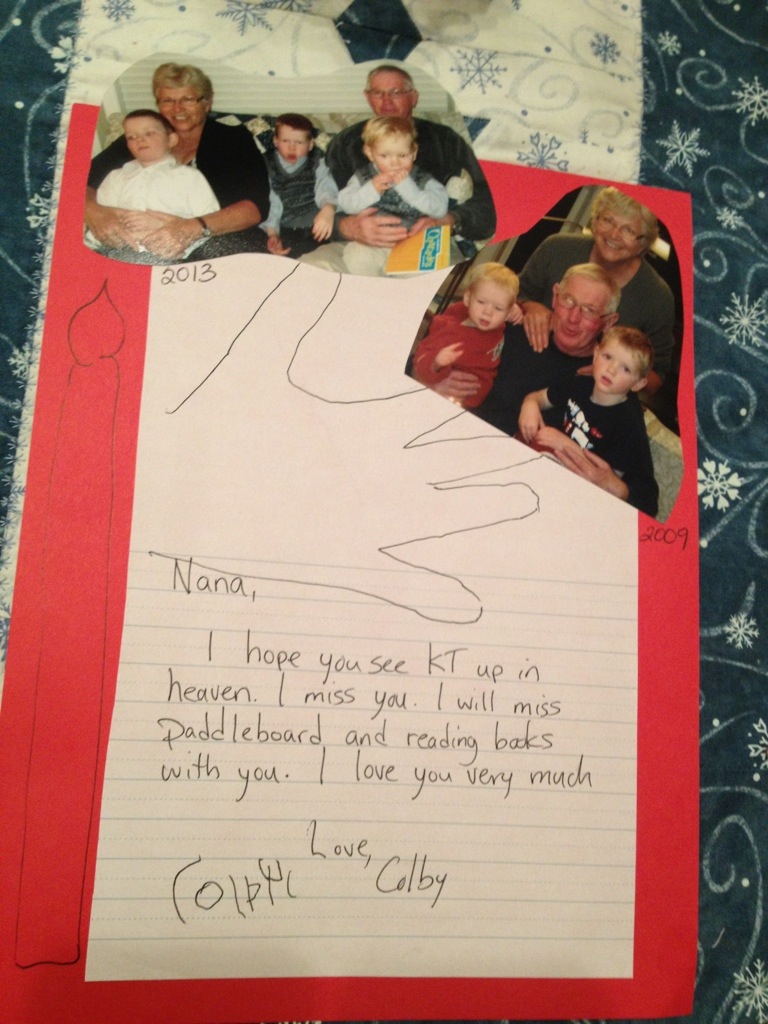 2013
2009
Nana,
I hope you see KT up in
heaven. I miss you. I will miss
Paddleboard and reading books
with you. I love you very much
Love,
Colby